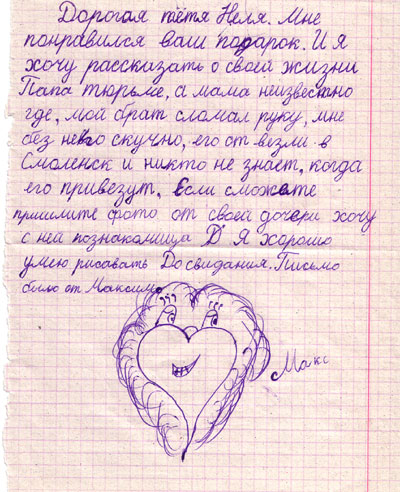 Дорогая тётя Неля. Мне
понравился ваш подарок. И я
хочу рассказать о своей жизни
Папа тюрьме, а мама неизвестно
где, мой брат сломал руку, мне
без него скучно, его от везли в
Смоленск и никто не знает, когда
его привезут, Если сможете
пришлите фото от своей дочери хочу
с ней познакомица Я хорошо
умею рисовать До свидания. Письмо
было от Максим.
Макс